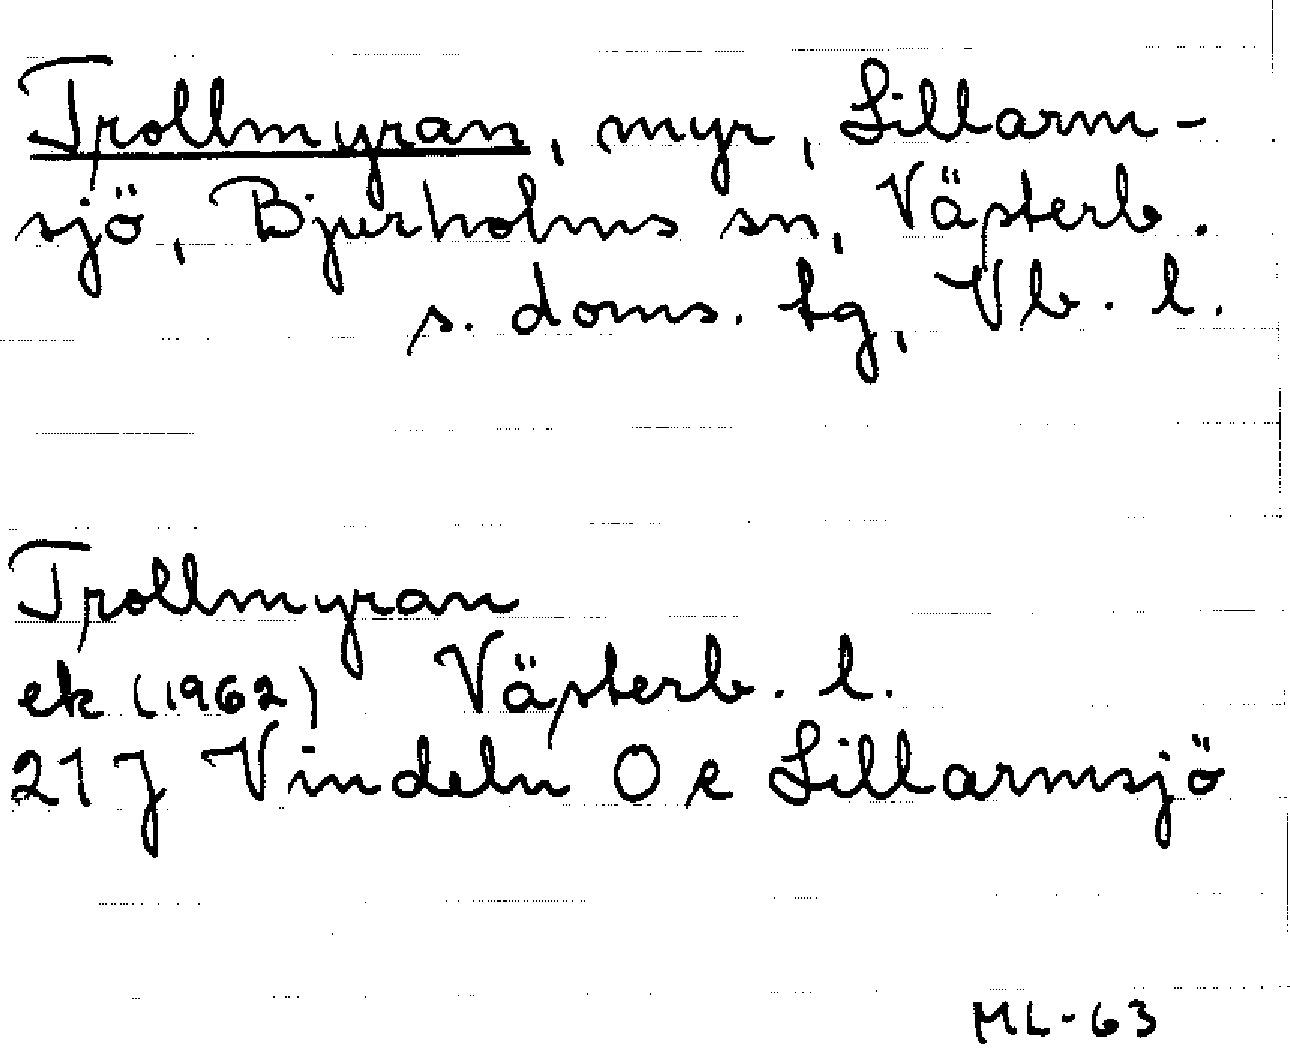 Trollmyran, myr, Lillarm-
sjö, Bjurholms sn, Västerb.
s. doms. tg, Vb. l.
Trollmyran
ek (1962) Västerb. l.
21 J Vindeln 0 e Lillarmsjö
ML-63